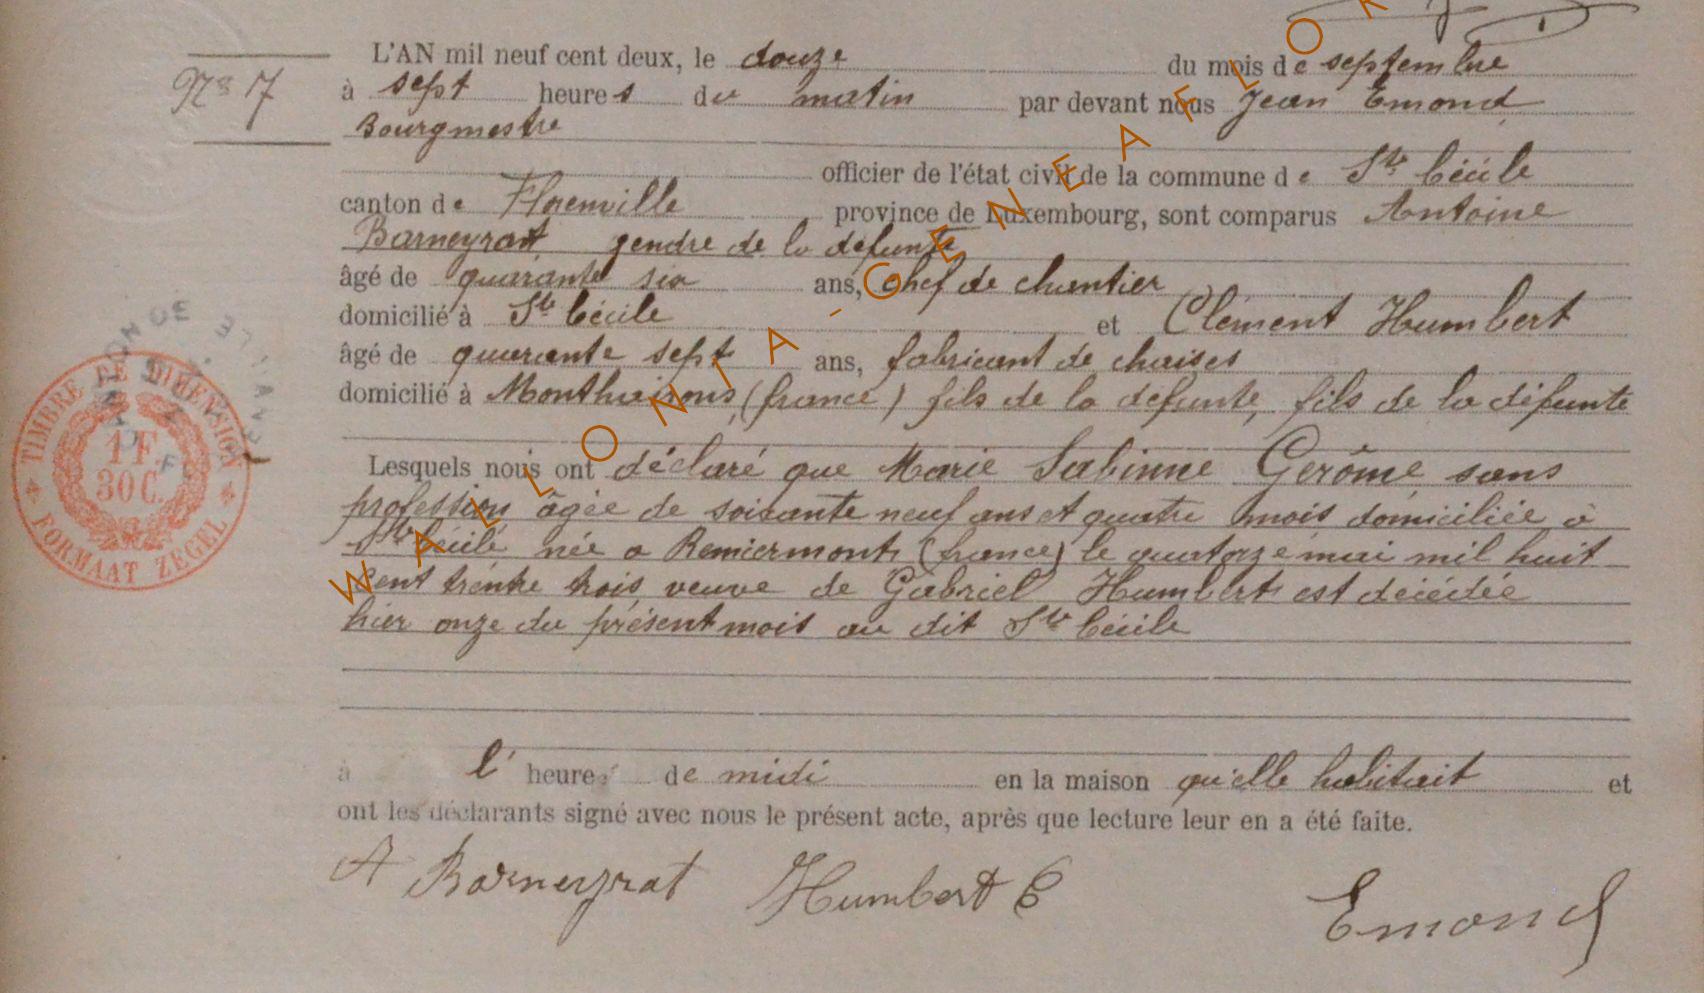 L'AN mil neuf cent deux, le douze du mois de septembre
N° 17
à sept heures du matin par devant nous Jean Emond
Bourgmestre
officier de l'état civil de la commune de Ste Cécile
canton de Florenville province de Luxembourg, sont comparus Antoine
Barneyrat gendre de la défunte
âgé de quarante six ans, chef de chantier
domicilié à Ste Cécile et Clément Humbert
âgé de quarante sept ans, fabricant de chaises
domicilié à Monthairons, (france) fils de la défunte, fils de la défunte
Lesquels nous ont déclaré que Marie Sabinne Gerôme sans
profession âgée de soixante neuf ans et quatre mois domiciliée à
Ste Cécile née a Remiermont (france) le quatorze mai mil huit
cent trente trois veuve de Gabriel Humbert est décédée
hier onze du présent mois au dit Ste Cécile
à l' heure de midi en la maison qu'elle habitait et
ont les déclarants signé avec nous le présent acte, après que lecture leur en a été faite.
A Barneyrat Humbert C Emond
TIMBRE DE DIMENSION
1 F.
30 C.
FORMAAT ZEGEL
WALLONIA-GENEAFLOR